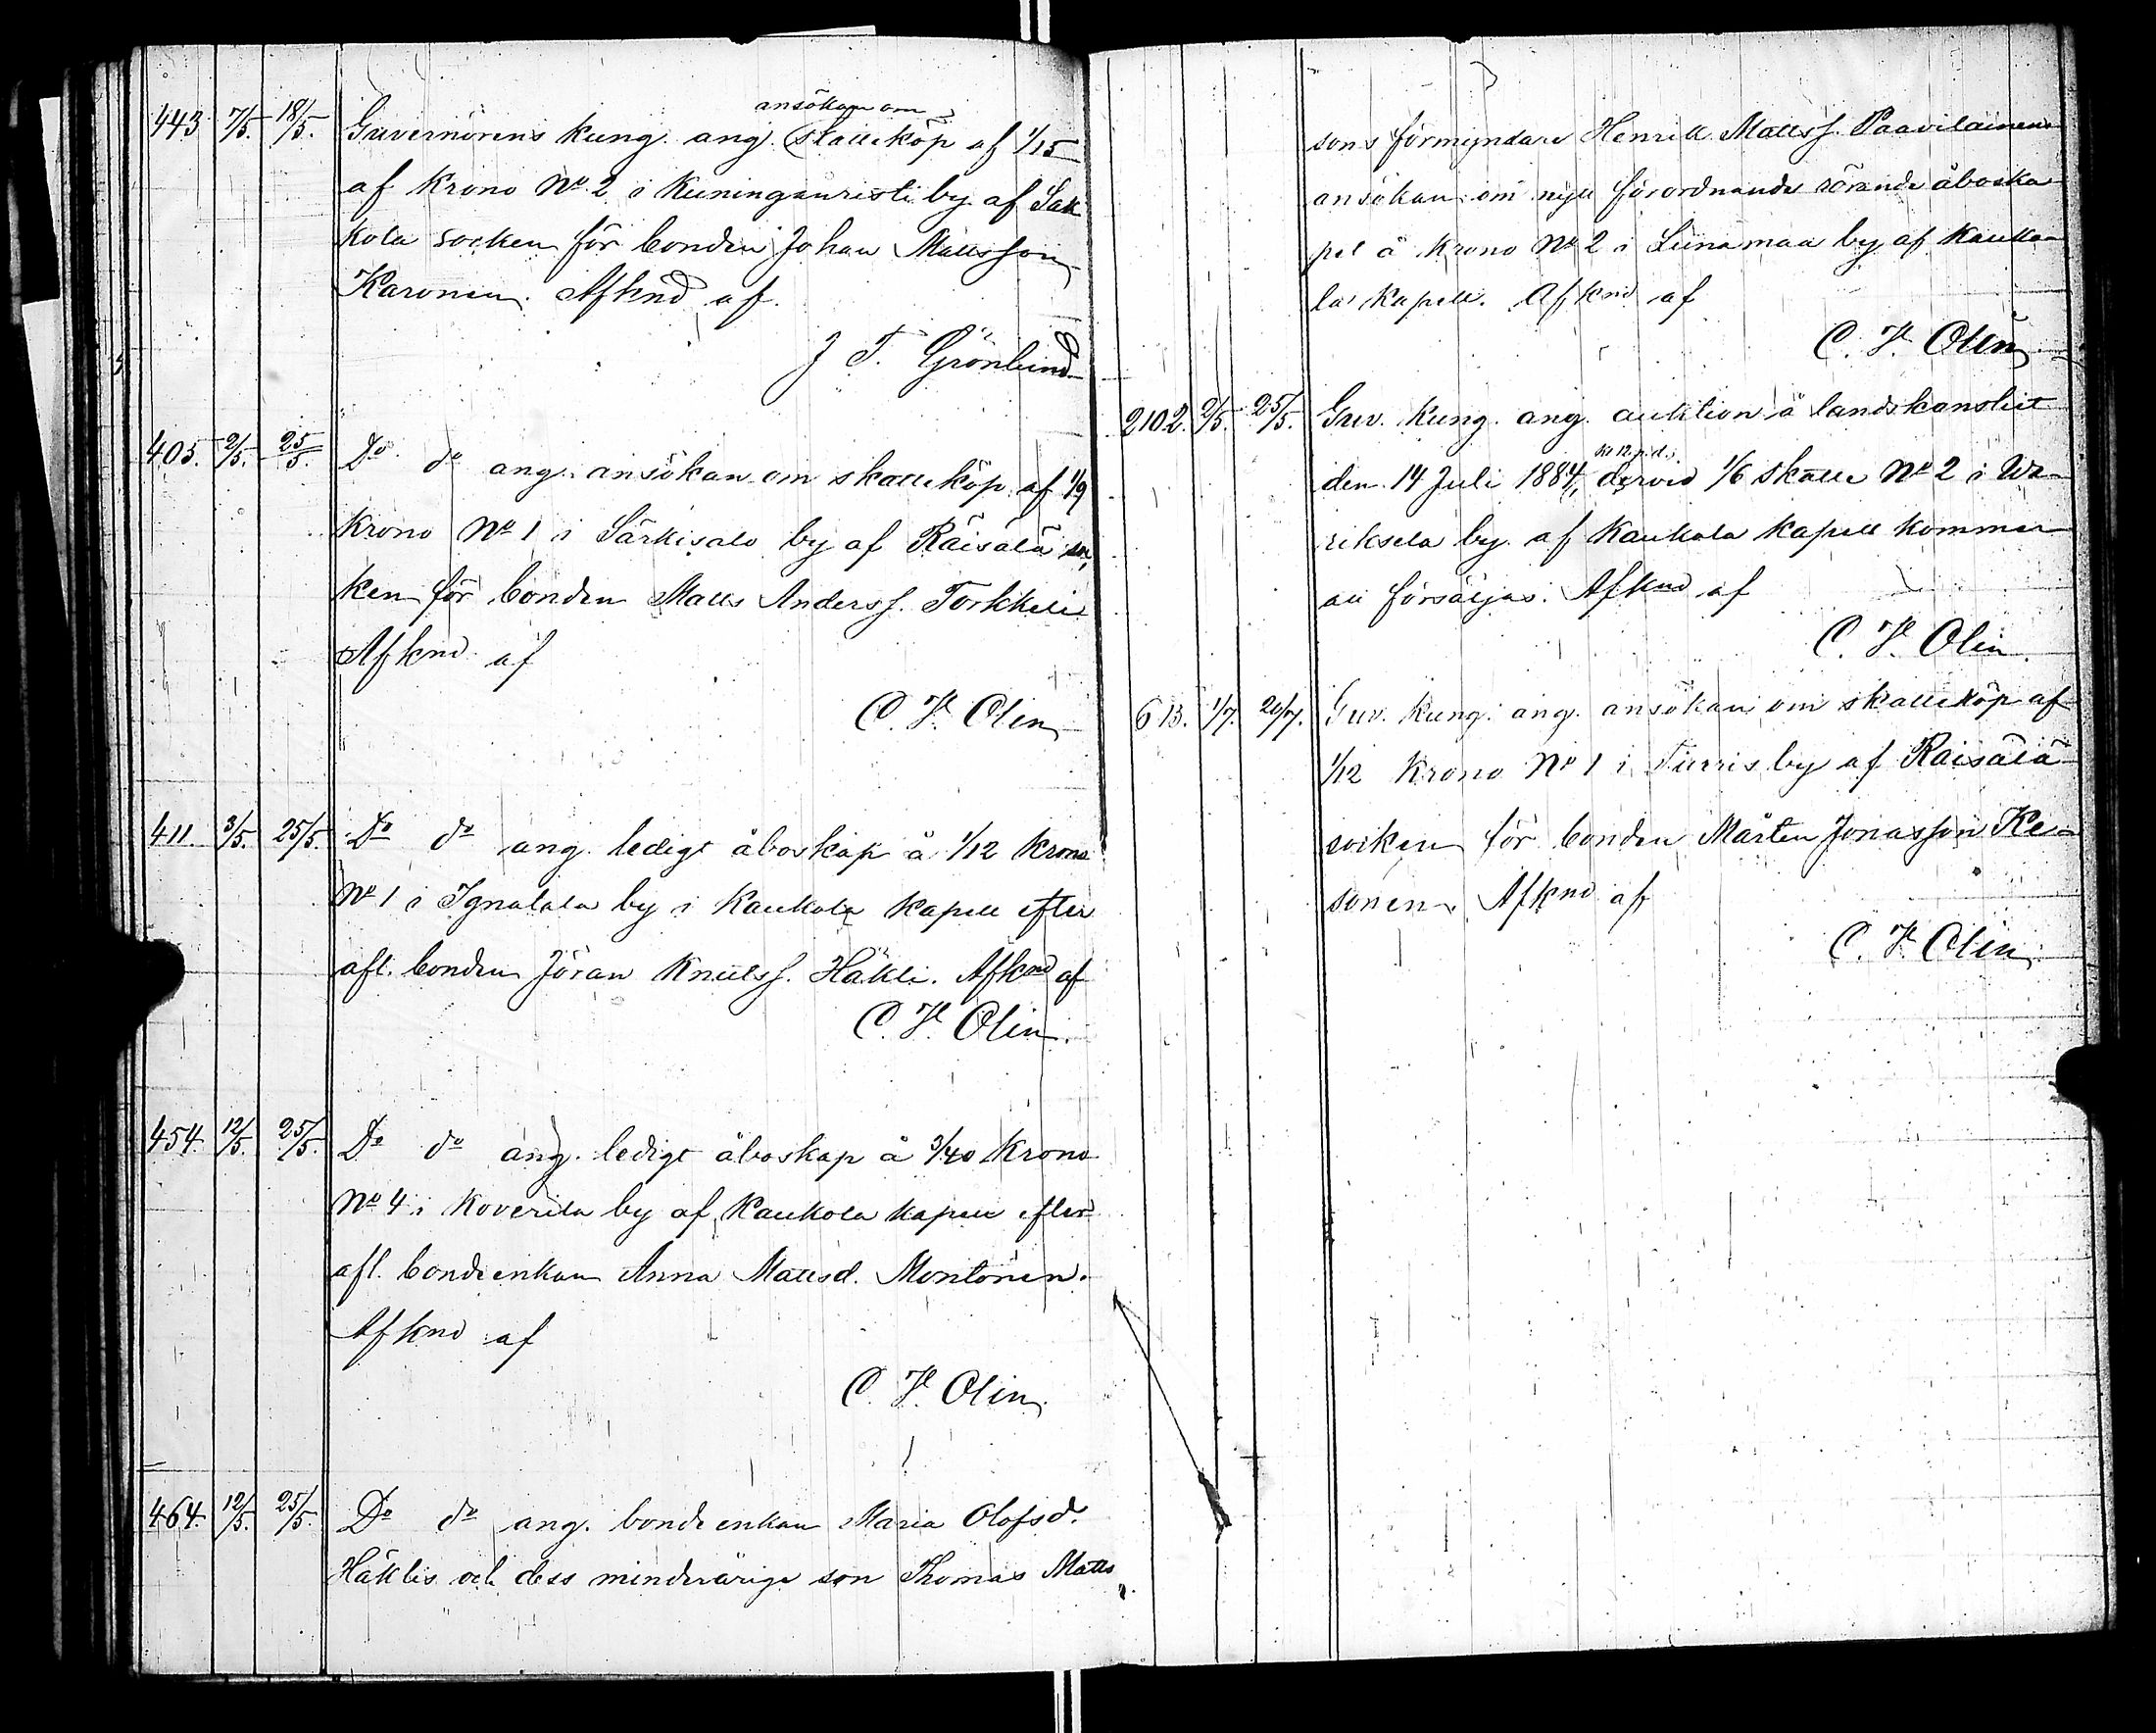 ansökan om
443. 7/5. 18/5. Guvernörens kung. ang. skatteköp af 1/15
af Krono No 2 i Kuningauristi by af Sak
kola socken för bonden Johan Mattsson
Karonen. Afknd af.
J T. Grönlund
405. 2/5. 25/5. Do do ang. ansökan om skatteköp af 1/9
krono No 1 i Särkisalo by af Räisälä so,
ken för bonden Matts Anderss. Torkkeli
Afknd af
C. F. Olin
411. 3/5. 25/5. Do do ang. ledigt åboskap å 1/12 krono
No 1 i Ignalala by i Kaukola kapell efter
afl. bonden Jöran Knutss. Häkli. Afknd af
C. F. Olin.
454. 12/5. 25/5. Do do ang. ledigt åboskap å 3/40 Krono
No 4 i Koverila by af Kaukola kapell efter
afl. bondeenkan Anna Mattsd. Montonen.
Afknd af
C. F. Olin.
464. 12/5. 25/5. Do do ang. bondeenkan Maria Olofsd.
Häklis och dess minderårige son Thomas Matts
sons förmyndare Henrik Matss. Paavilainens
ansökan om nytt förordnande rörande åboska
pet å Krono No 2 i Liinamaa by af Kauko-
la kapell. Afknd af
C. F. Olin
2102. 2/5. 25/5. Guv. kung. ang. auktion å landskansliet
kl 12 p.d.,
den 14 Juli 1884, dervid 1/6 skatte No 2 i Wa-
riksela by af Kaukola kapell kommer
att försäljas. Afknd af
C. F. Olin.
613. 1/7. 20/7. Guv. kung. ang. ansökan om skatteköp af
1/12 Krono No 1 i Tiurris by af Räisälä
socken för bonden Mårten Jonasson Ke-
sonen. Afknd af
C. F. Olin